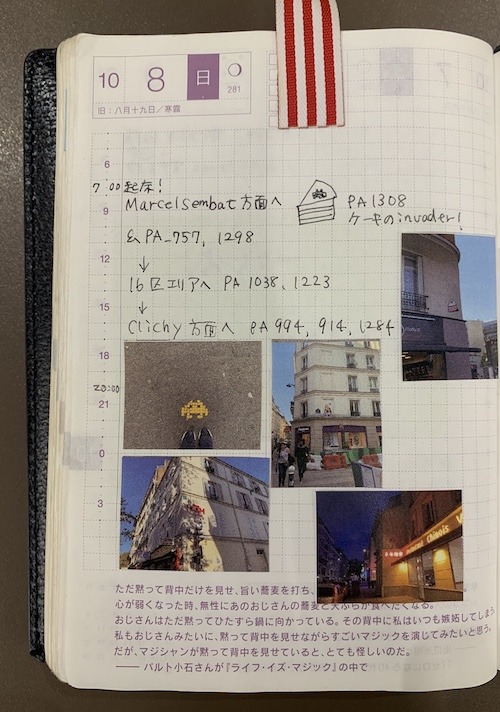 10 8 日 281
旧:八月十九日/寒露
6
7:00 起床!
Marcel sembat 方面へ PA 1308
ケーキのinvader!
9
& PA_757, 1298
12
↓
16区エリアへ PA 1038, 1223
15
↓
Clichy 方面へ PA 994, 914, 1284
18
23:00
21
0
3
ただ黙って背中だけを見せ、旨い蕎麦を打ち、
心が弱くなった時、無性にあのおじさんの蕎麦と天ぷらが食べたくなる。
おじさんはただ黙ってひたすら鍋に向かっている。その背中に私はいつも嫉妬してしまう
私もおじさんみたいに、黙って背中を見せながらすごいマジックを演じてみたいと思う。
だが、マジシャンが黙って背中を見せていると、とても怪しいのだ。
―― バルト小石さんが『ライフ・イズ・マジック』の中で